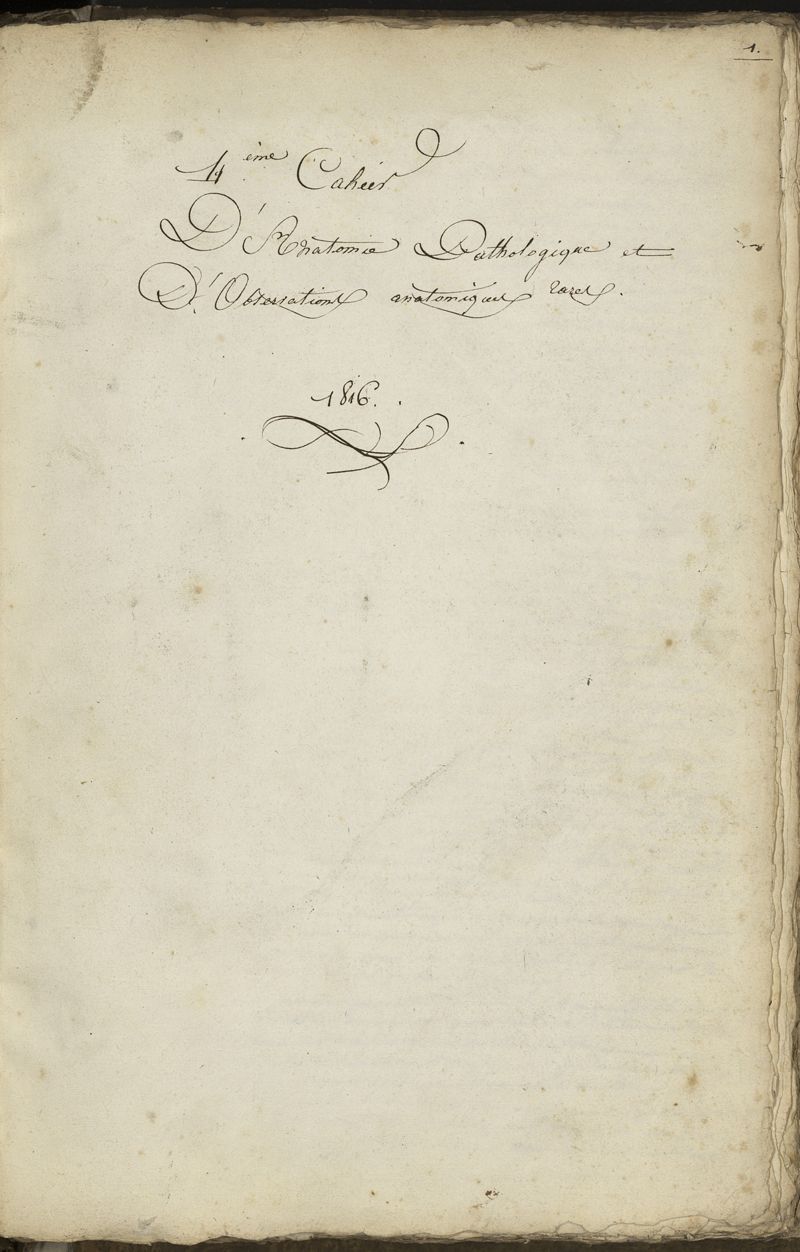 1.
4ème Cahier
D'Anatomie Pathologique et
D'Observations anatomiques rares.
1816.